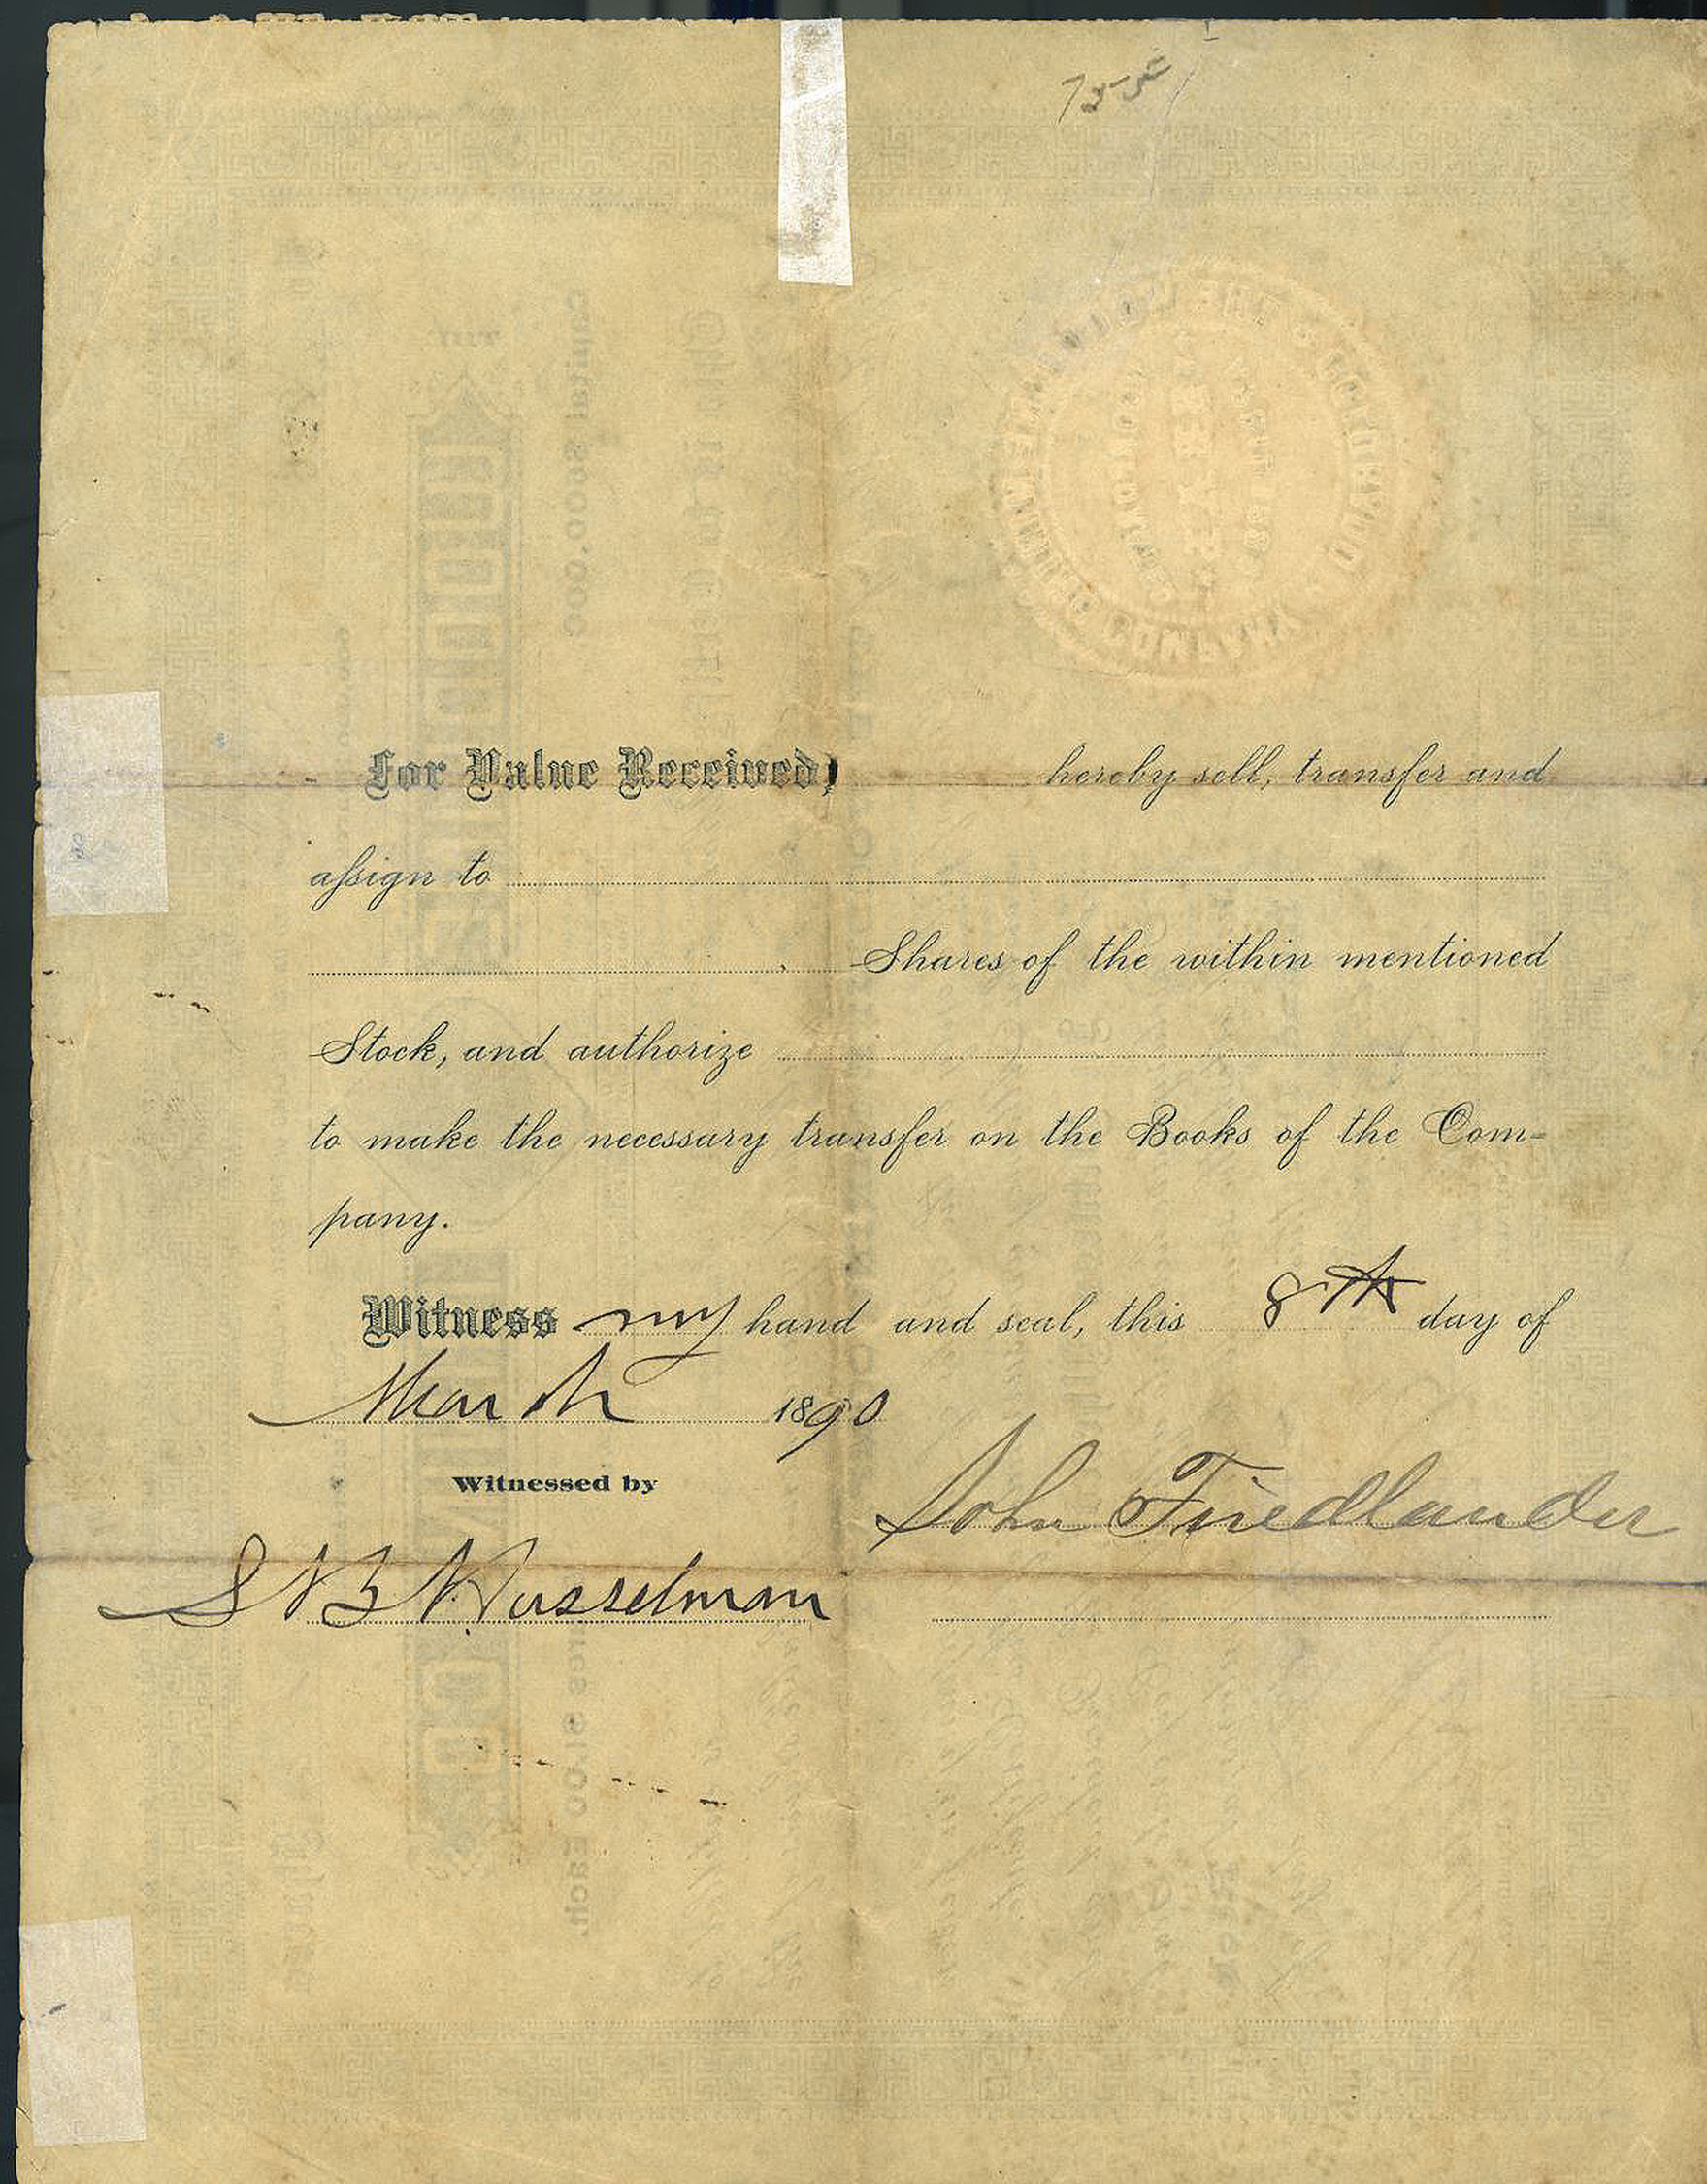 For Value Received, hereby sell, transfer and
assign to
Shares of the within mentioned
Stock, and authorize
to make the necessary transfer on the Books of the Com-
pany.
Witness my hand and seal, this 8th day of
March 1890
Witnessed by
John Friedlander
S N B Wasselman